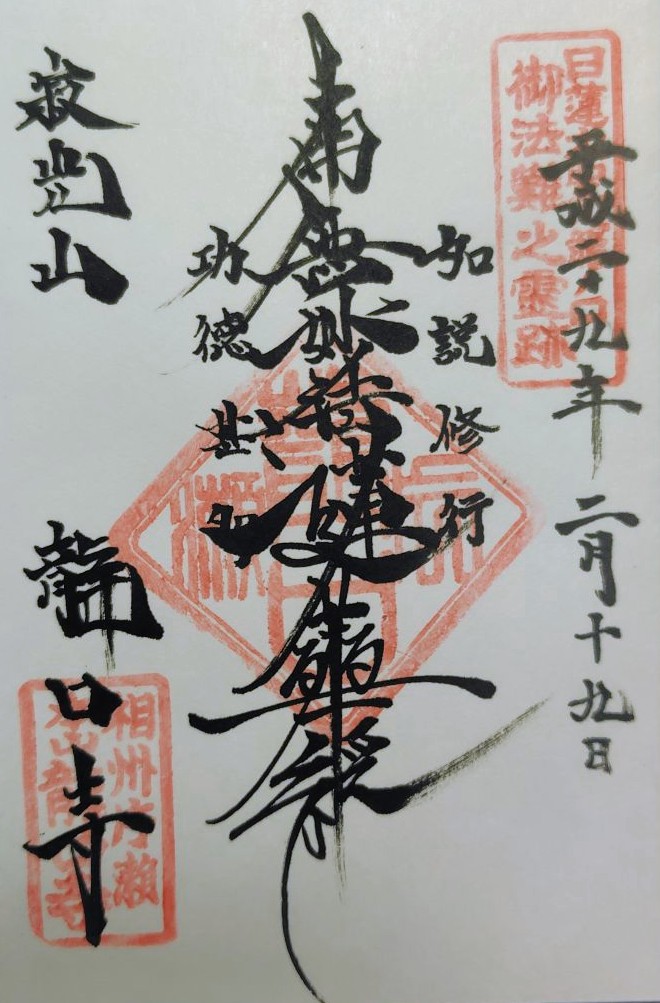 平成二十九年 二月十九日
如説修行
南無妙法蓮華経
功徳甚多
寂光山
龍口寺
御法難之霊跡
相州片瀬